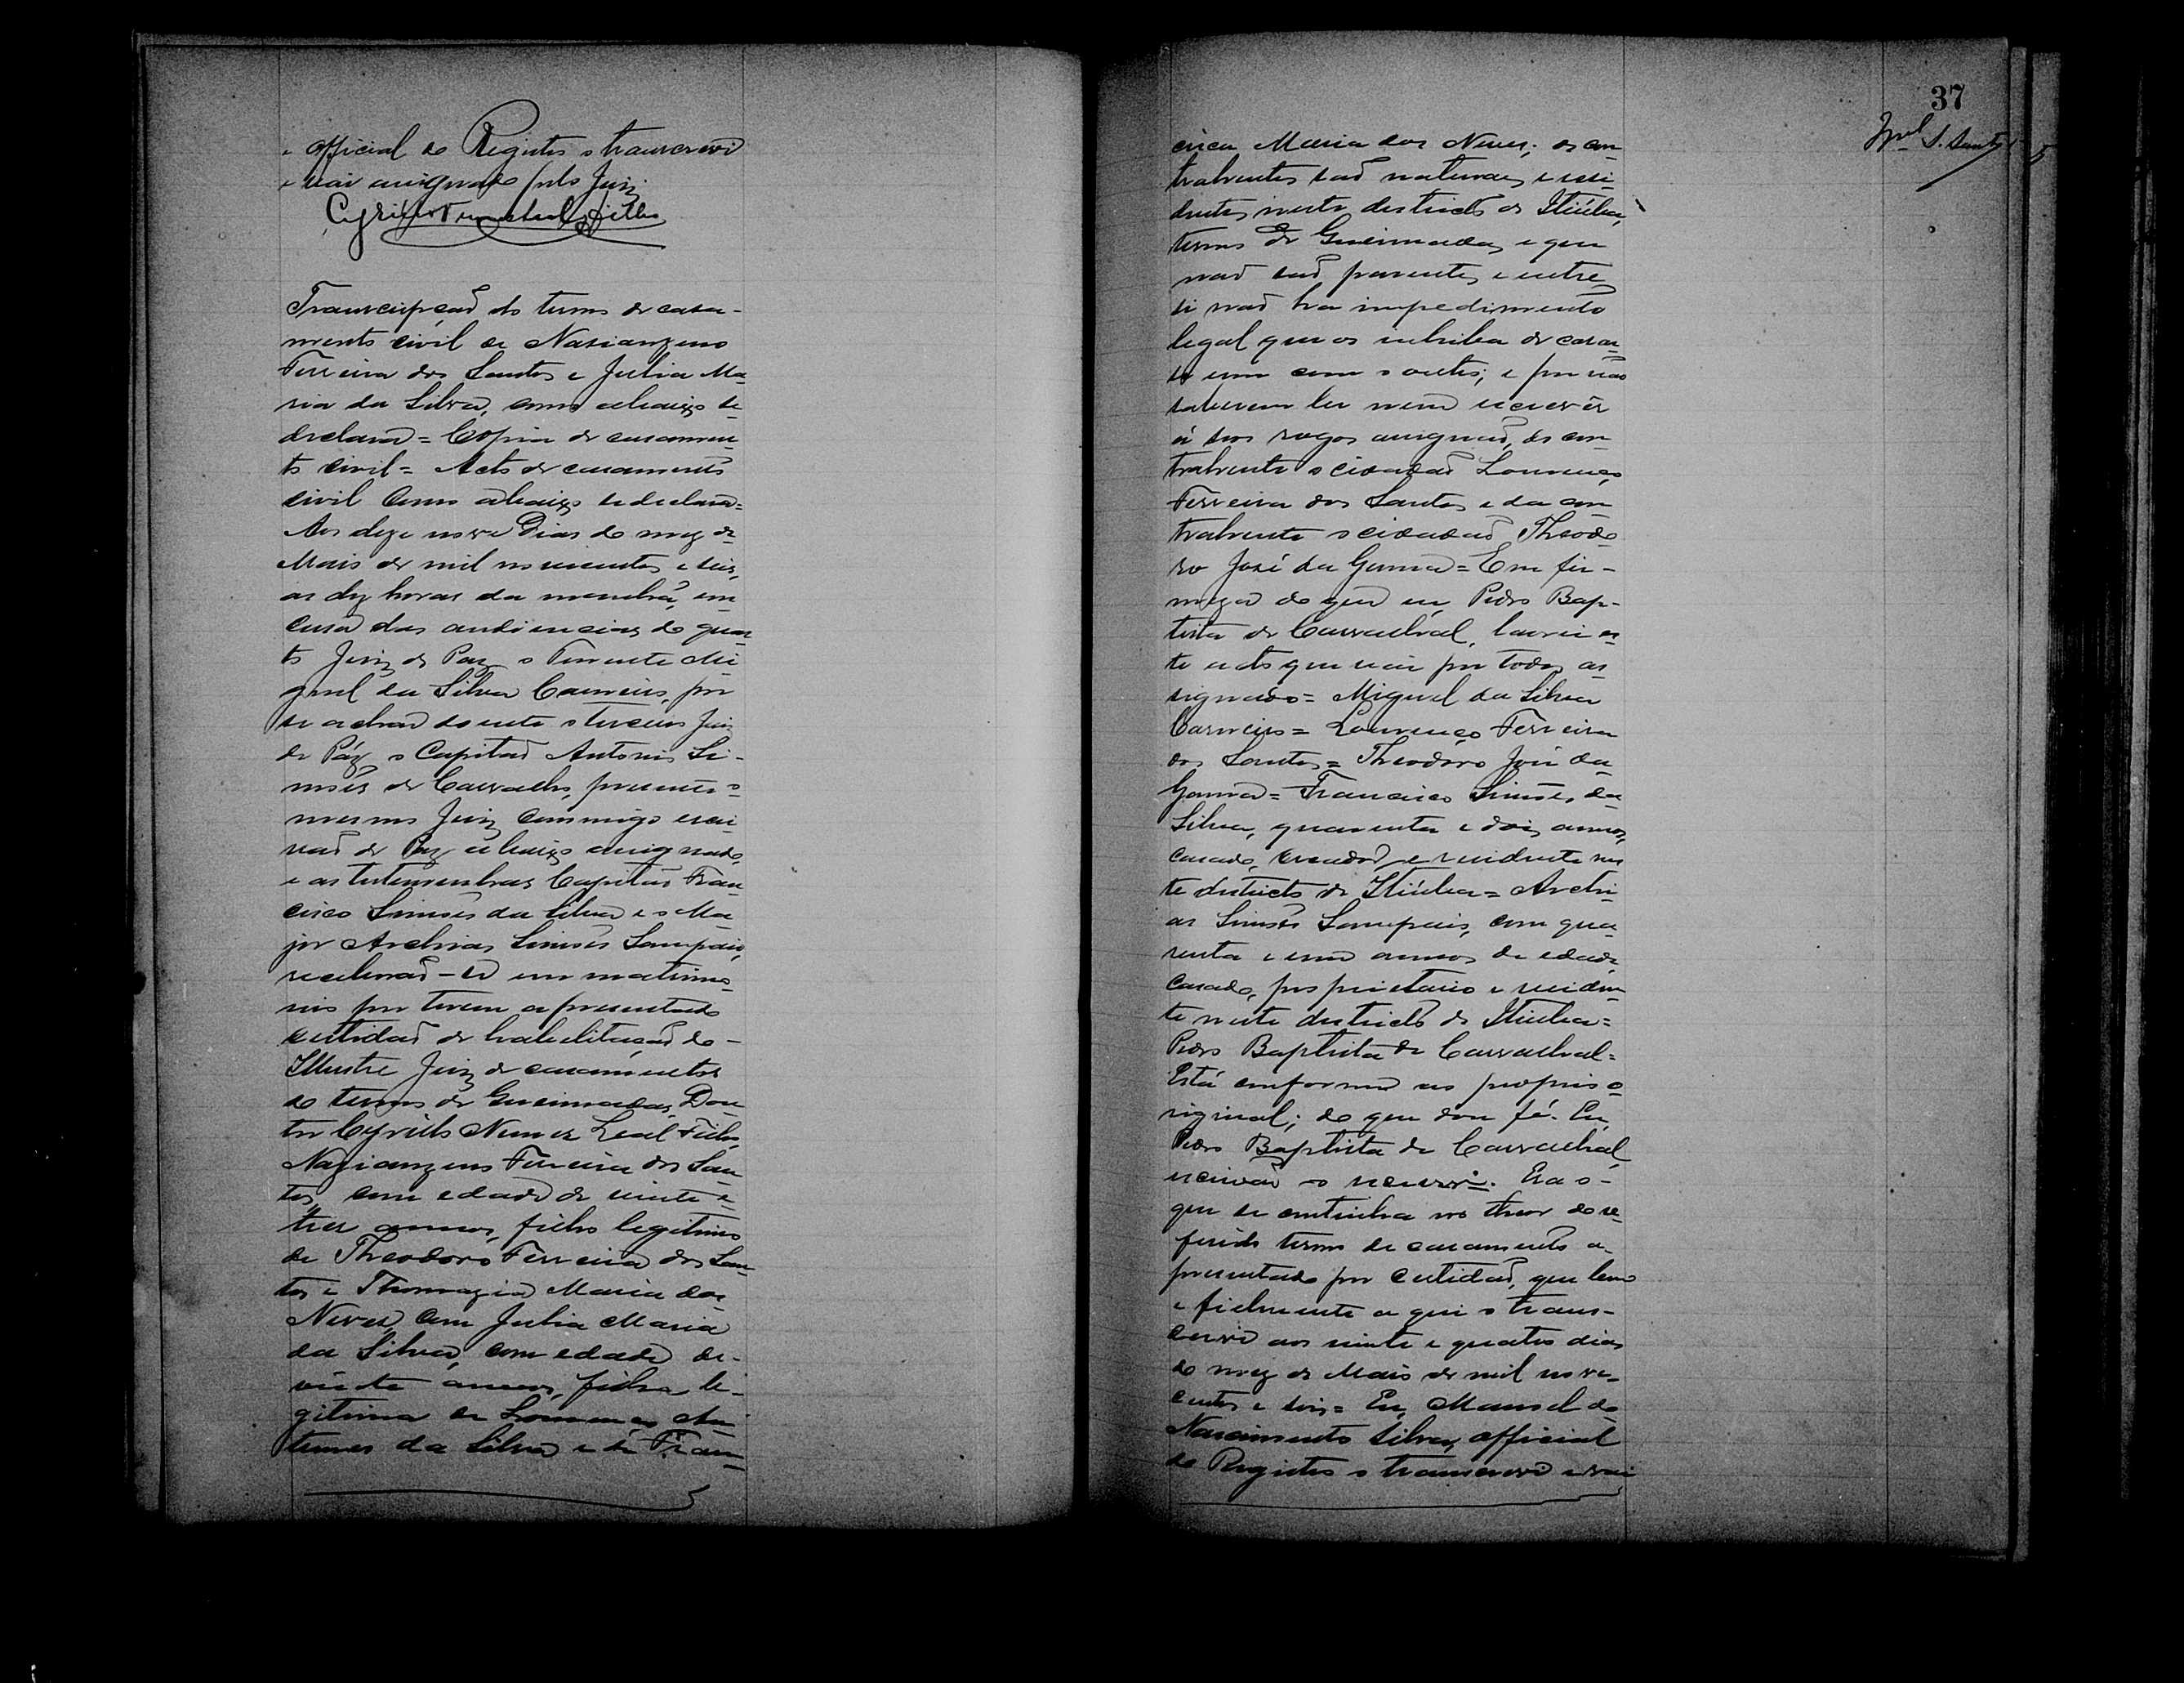 e official do Registro o transcrevi
e vai assignado pelo Juiz
Transcripção do termo de casa-
mento civil de Nazianzeno
Ferreira dos Santos e Julia Ma-
ria da Silva, como abaixo se
declara = Copia de casamen-
to civil = Acto de casamento
civil como abaixo se declara =
Aos deze nove Dias do mez de
Maio de mil novecentos e seis,
as dez horas da manhã, em
casa das audiencias do quar-
to Juiz de Paz o Tenente Mi-
guel da Silva Carneiro, por
se achar doente o terceiro Juiz
de Páz o Capitão Antonio Si-
mões de Carvalho, presente o
mesmo Juiz commigo escri-
vão de Paz abaixo assignado,
e as testemunhas Capitão Fran-
cisco Simões da Silva e o Ma-
jor Archias Simões Sampaio,
receberão-se em matrimo-
nio por terem apresentado
certidão de habilitação do -
Illustre Juiz de casamentos
do termo de Queimadas, Dou-
tor Cyrillo Nunes Leal Filho,
Nazianzeno Ferreira dos San-
tos, com edade de vinte e
tres annos, filho legitimo
de Theodoro Ferreira dos San-
tos e Thomazia Maria das
Neves, com Julia Maria
da Silva, com edade de -
vinte annos, filha le-
gitima de Lourenço An-
tunes da Silva e de Fran-
37
cisca Maria das Neves; os con-
trahentes são naturaes e resi-
dentes neste districto de Itiúba,
termo de Queimadas, e que
não são parentes e entre
si não ha impedimento
legal que os inhiba de casar-
se um com o outro; e por não
saberem ler nem escrever
á seos rogos assignão, do con-
trahente o cidadão Lourenço
Ferreira dos Santos e da con-
trahente o cidadão Theodo-
ro José da Gama = Em fir-
meza do que eu, Pedro Bap-
tista de Carvalhal, lavrei es-
te acto que vai por todos as-
signado = Miguel da Silva
Carneiro = Lourenço Ferreira
dos Santos = Theodoro José da
Gama = Francisco Simões da
Silva, quarenta e dois annos,
casado, creador e residente nes-
te districto de Itiúba = Archi-
as Simões Sampaio, com qua-
renta e um annos de edade,
casado, proprietario e residen-
te neste districto de Itiuba =
Pedro Baptista de Carvalhal =
Está conforme ao proprio o-
riginal; do que dou fé. Eu,
Pedro Baptista de Carvalhal,
escrivão o escrevi. Era o -
que se continha no theor do re-
ferido termo de casamento a-
presentado por certidão, que bem
e fielmente aqui o trans-
crevi aos vinte e quatro dias
do mez de Maio de mil nove-
centos e seis = Eu, Manoel do
Nascimento Silva, official
do Registro o transcrevi e vai